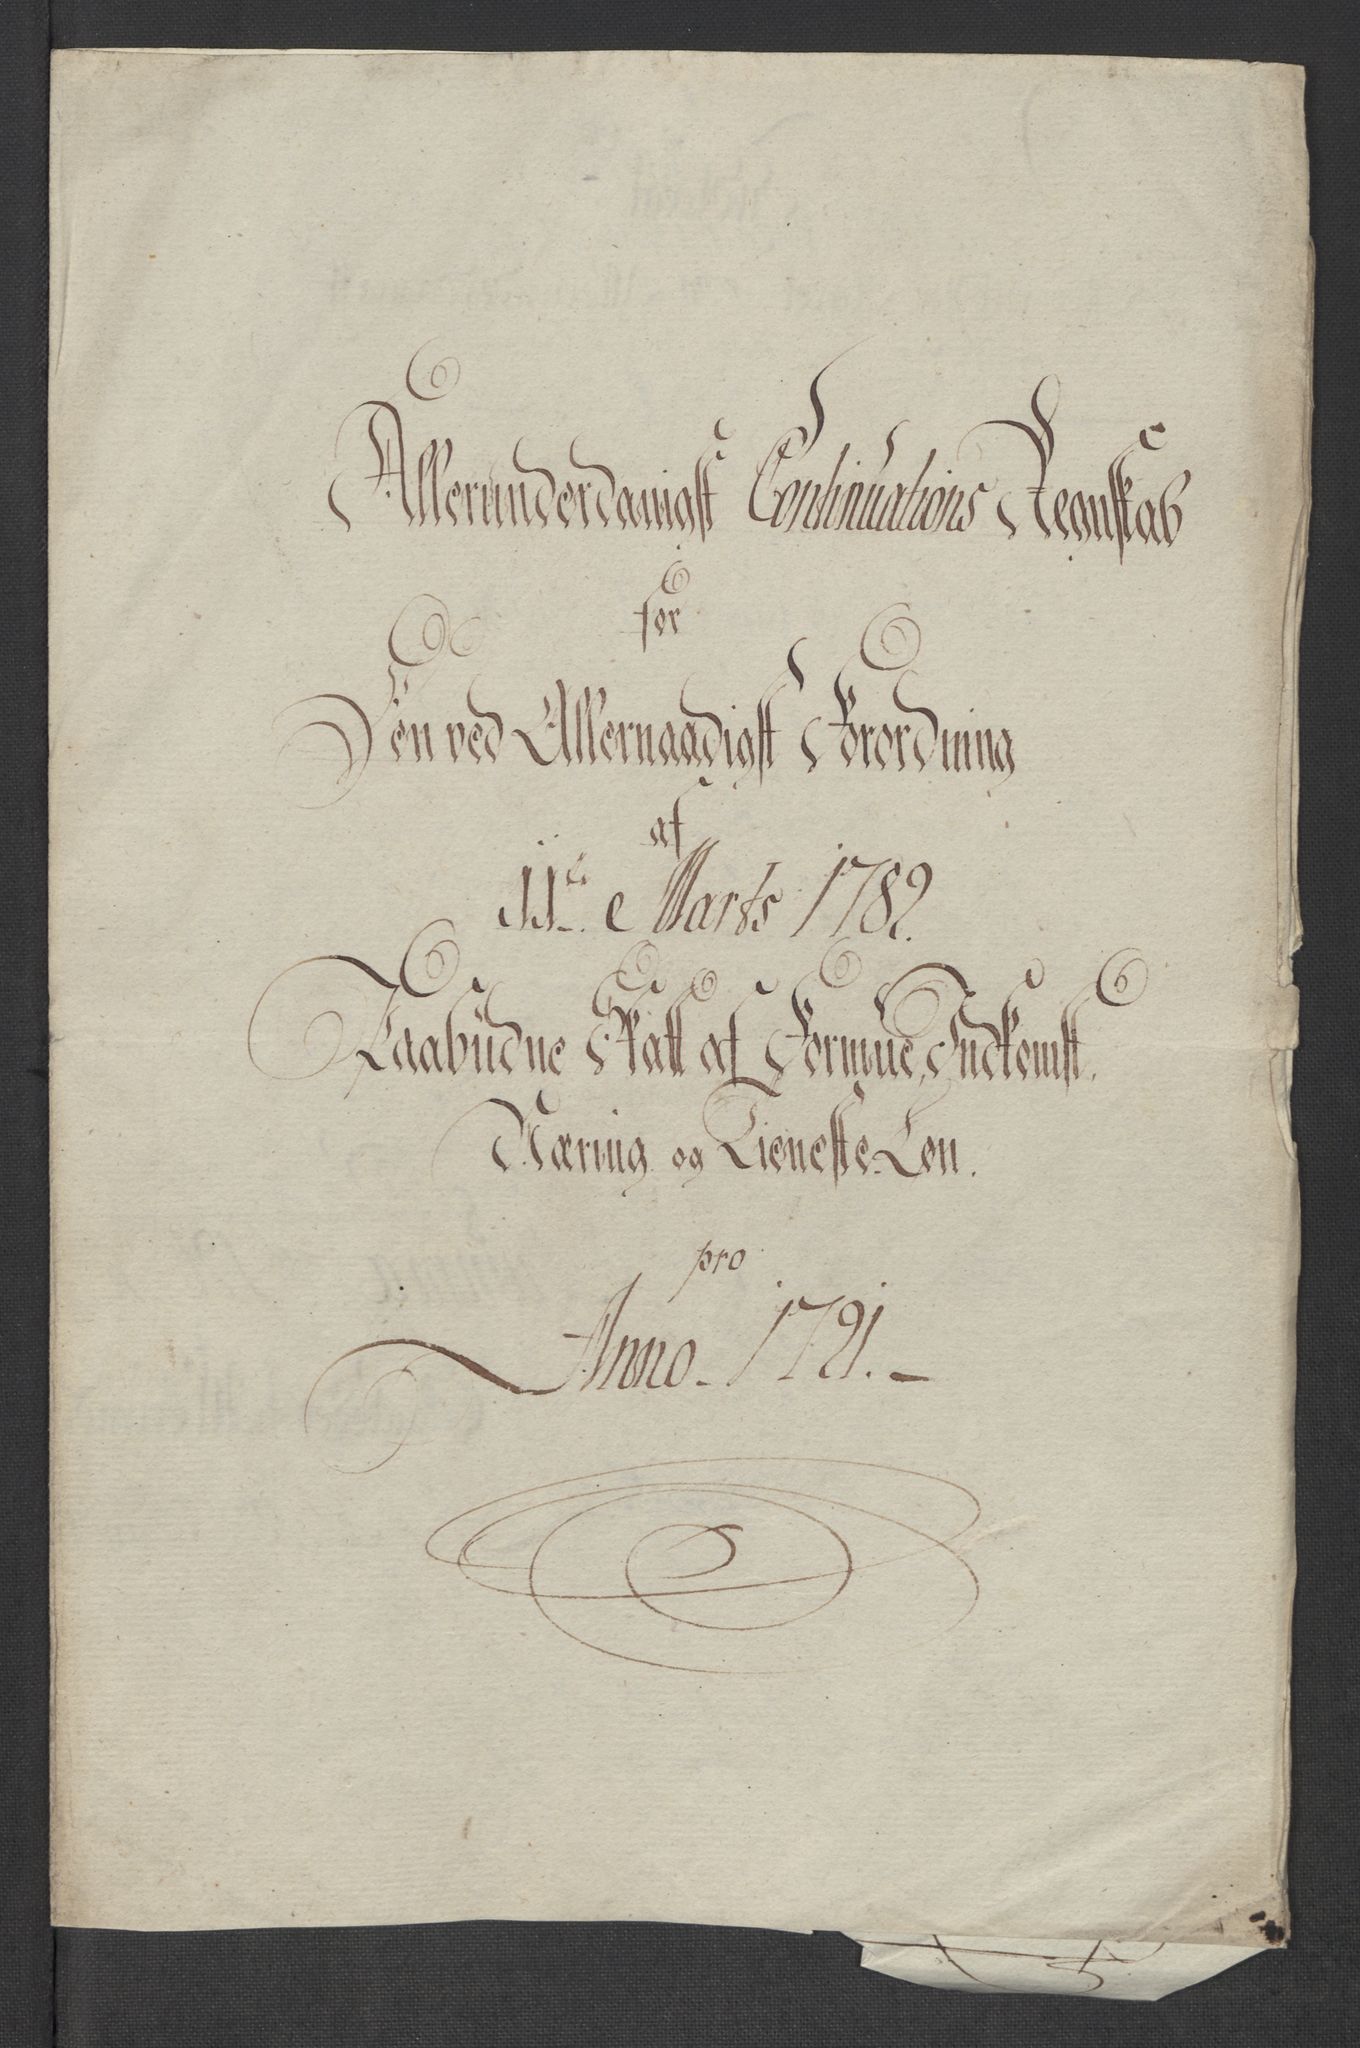 Allerunderdanigst Continuations Regnskab
for
Den ved Allernaadigst Forordning
af
11te Marts 1782.
Paabudne Skatt af Formue, Indkomst.
Næring og Tieneste-Løn.
pro
Anno 1791.